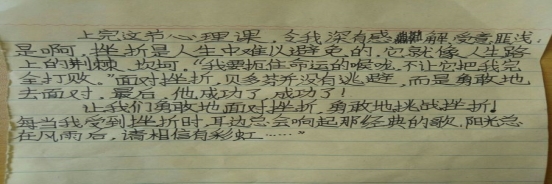 上完这节心理课,令我深有感 解受意匪浅,
是啊,挫折是人生中难以避免的,它就像人生路
上的荆棘、坎坷,“我要扼住命运的喉咙,不让它把我完
全打败。”面对挫折,贝多芬并没有逃避,而是勇敢地
去面对,最后,他成功了,成功了!
让我们勇敢地面对挫折,勇敢地挑战挫折!
每当我受到挫折时,耳边总会响起那经典的歌,阳光总
在风雨后,请相信有彩虹……”